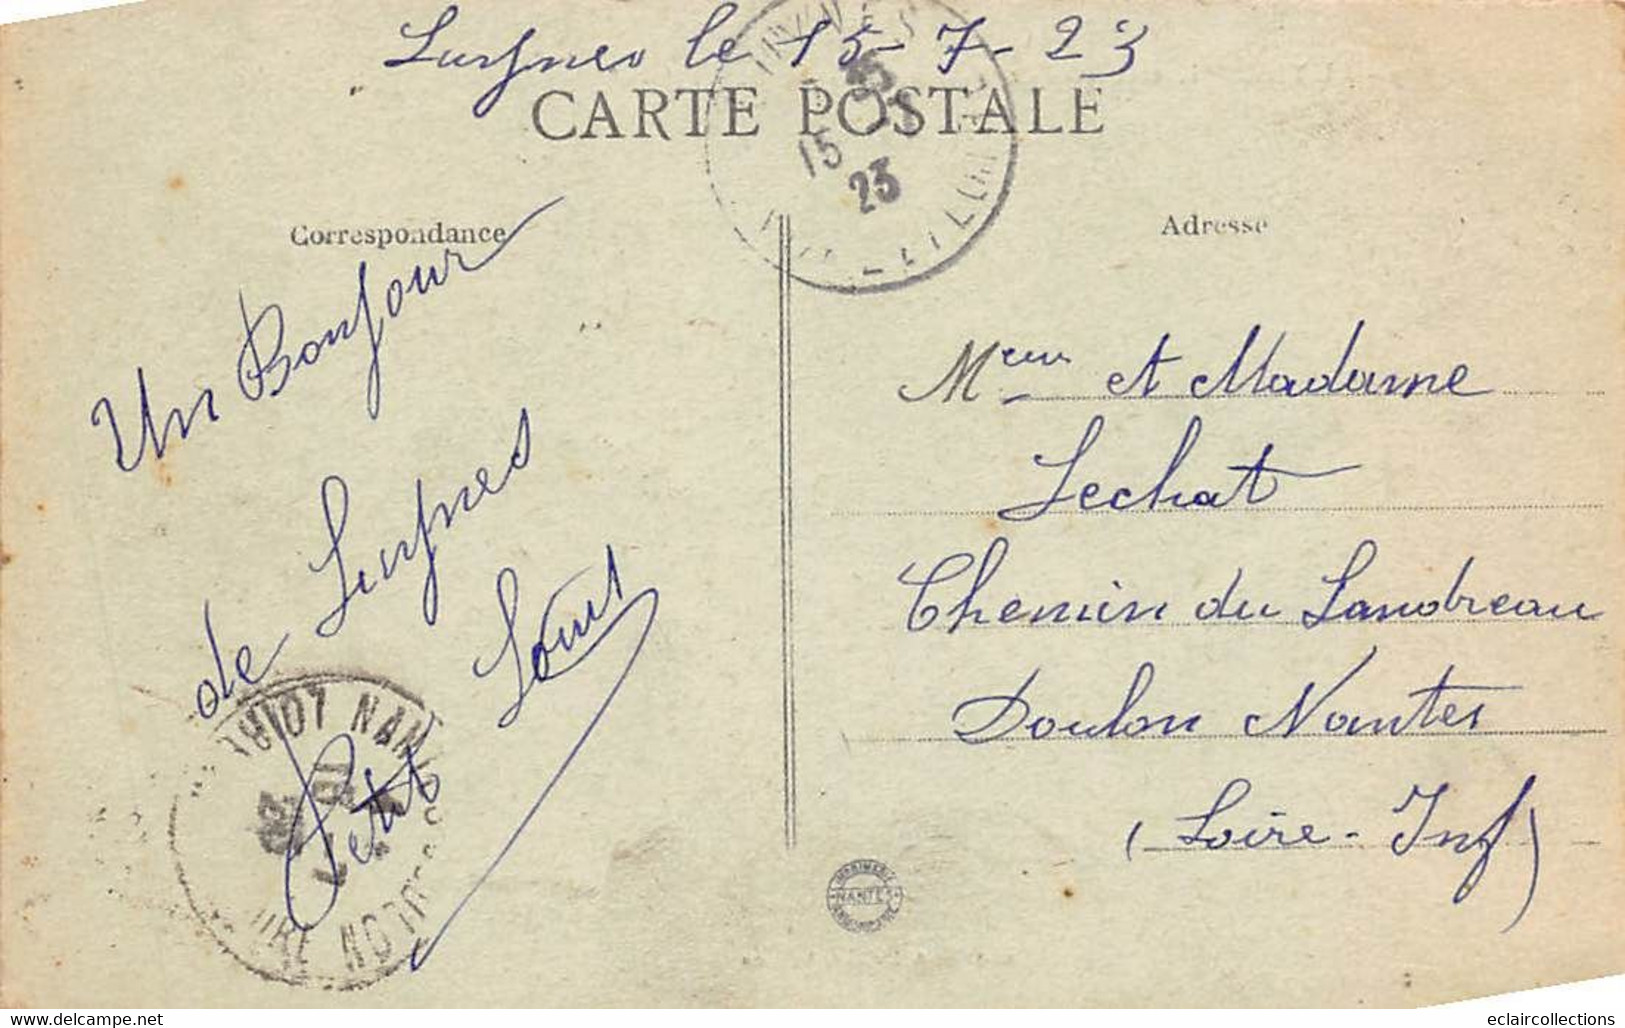 Luynes le 15-7-23
CARTE POSTALE
15
23
Correspondance
Adresse
Un Bonjour
de Luynes
Louis
Petit
NANTES
Mr et Madame
Lechat
Chemin du Landreau
Doulon Nantes
(Loire-Inf)
NANTES
eclaircollections